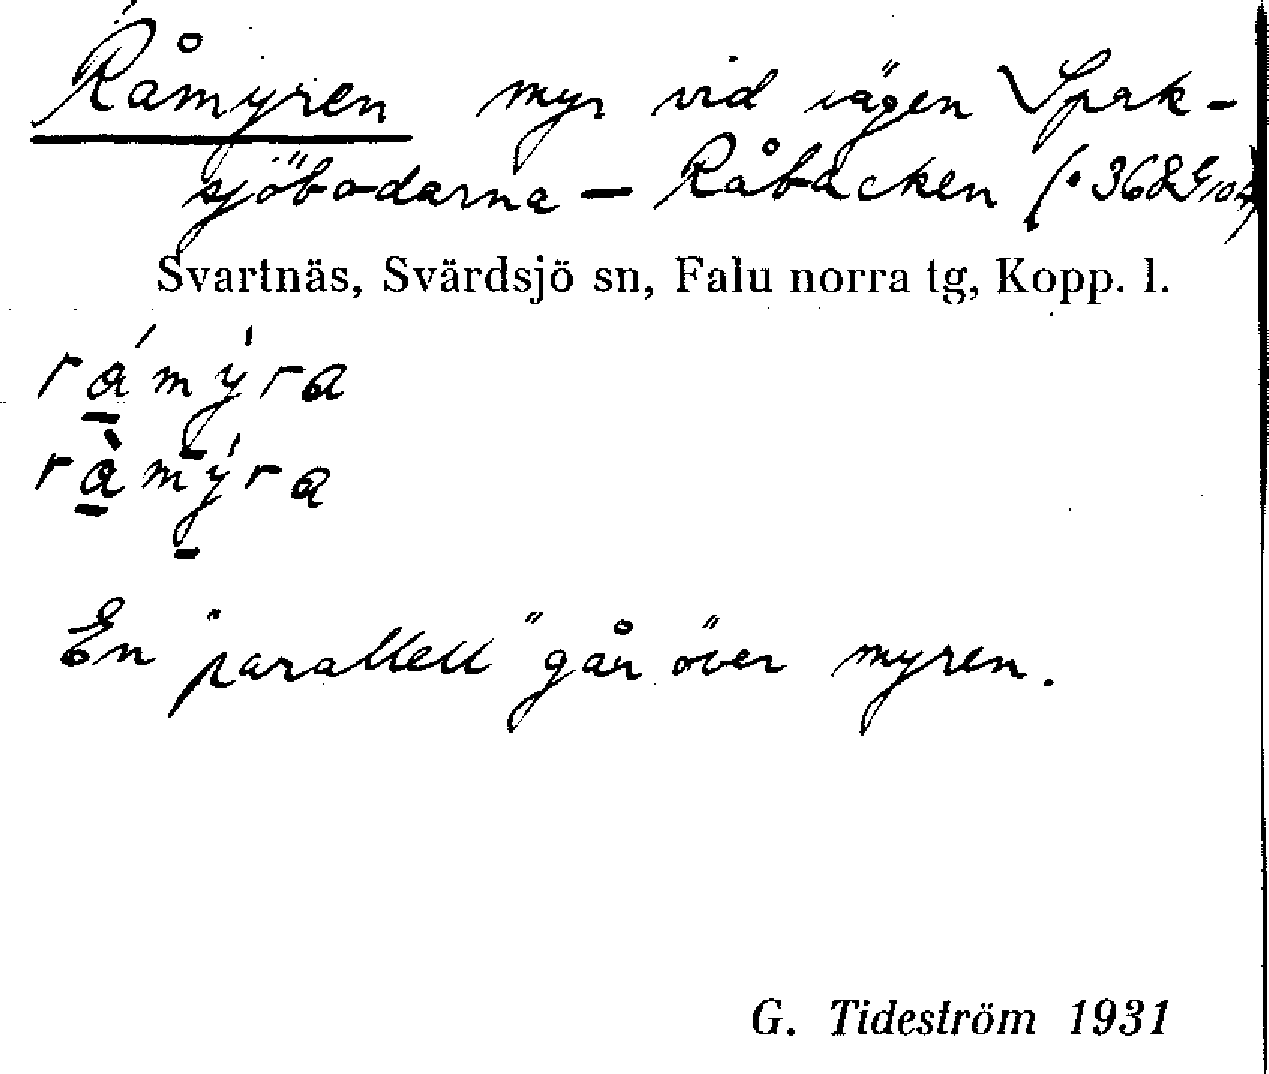 Råmyren myr vid vägen Spak-
sjöbodarna – Råbacken
Svartnäs, Svärdsjö sn, Falu norra tg, Kopp. l.
rá̲mý̲ra
rà̲mý̲ra
En "parallell" går över myren.
G. Tideström 1931